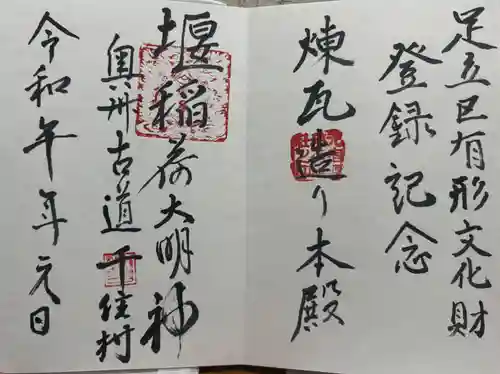 足立区有形文化財
登録記念
煉瓦造り本殿
堰稲荷大明神
奥州古道 千住村
令和午年元日